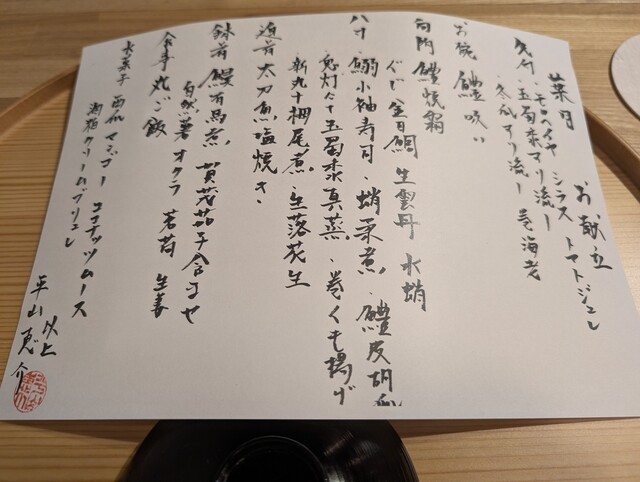 葉月 お献立
先付 モロヘイヤ シラス トマトジュレ
・玉蜀黍すり流し
・冬瓜すり流し 巻海老
お椀 鱧 吸い
向附 鱧焼霜
ぐじ 金目鯛 生 水蛸
八寸 鰯小袖寿司、蛸柔煮、鱧皮胡瓜
鬼灯 玉蜀黍真蒸、巻くも揚げ
新丸十梔尾煮、生落花生
進肴 太刀魚塩焼き
鉢肴 鰻有馬煮 賀茂茄子含ませ
自然薯 オクラ 茗荷 生姜
食事 丸ご飯
水菓子 西瓜 マンゴー ココナッツムース
クリームブリュレ
以上
平山